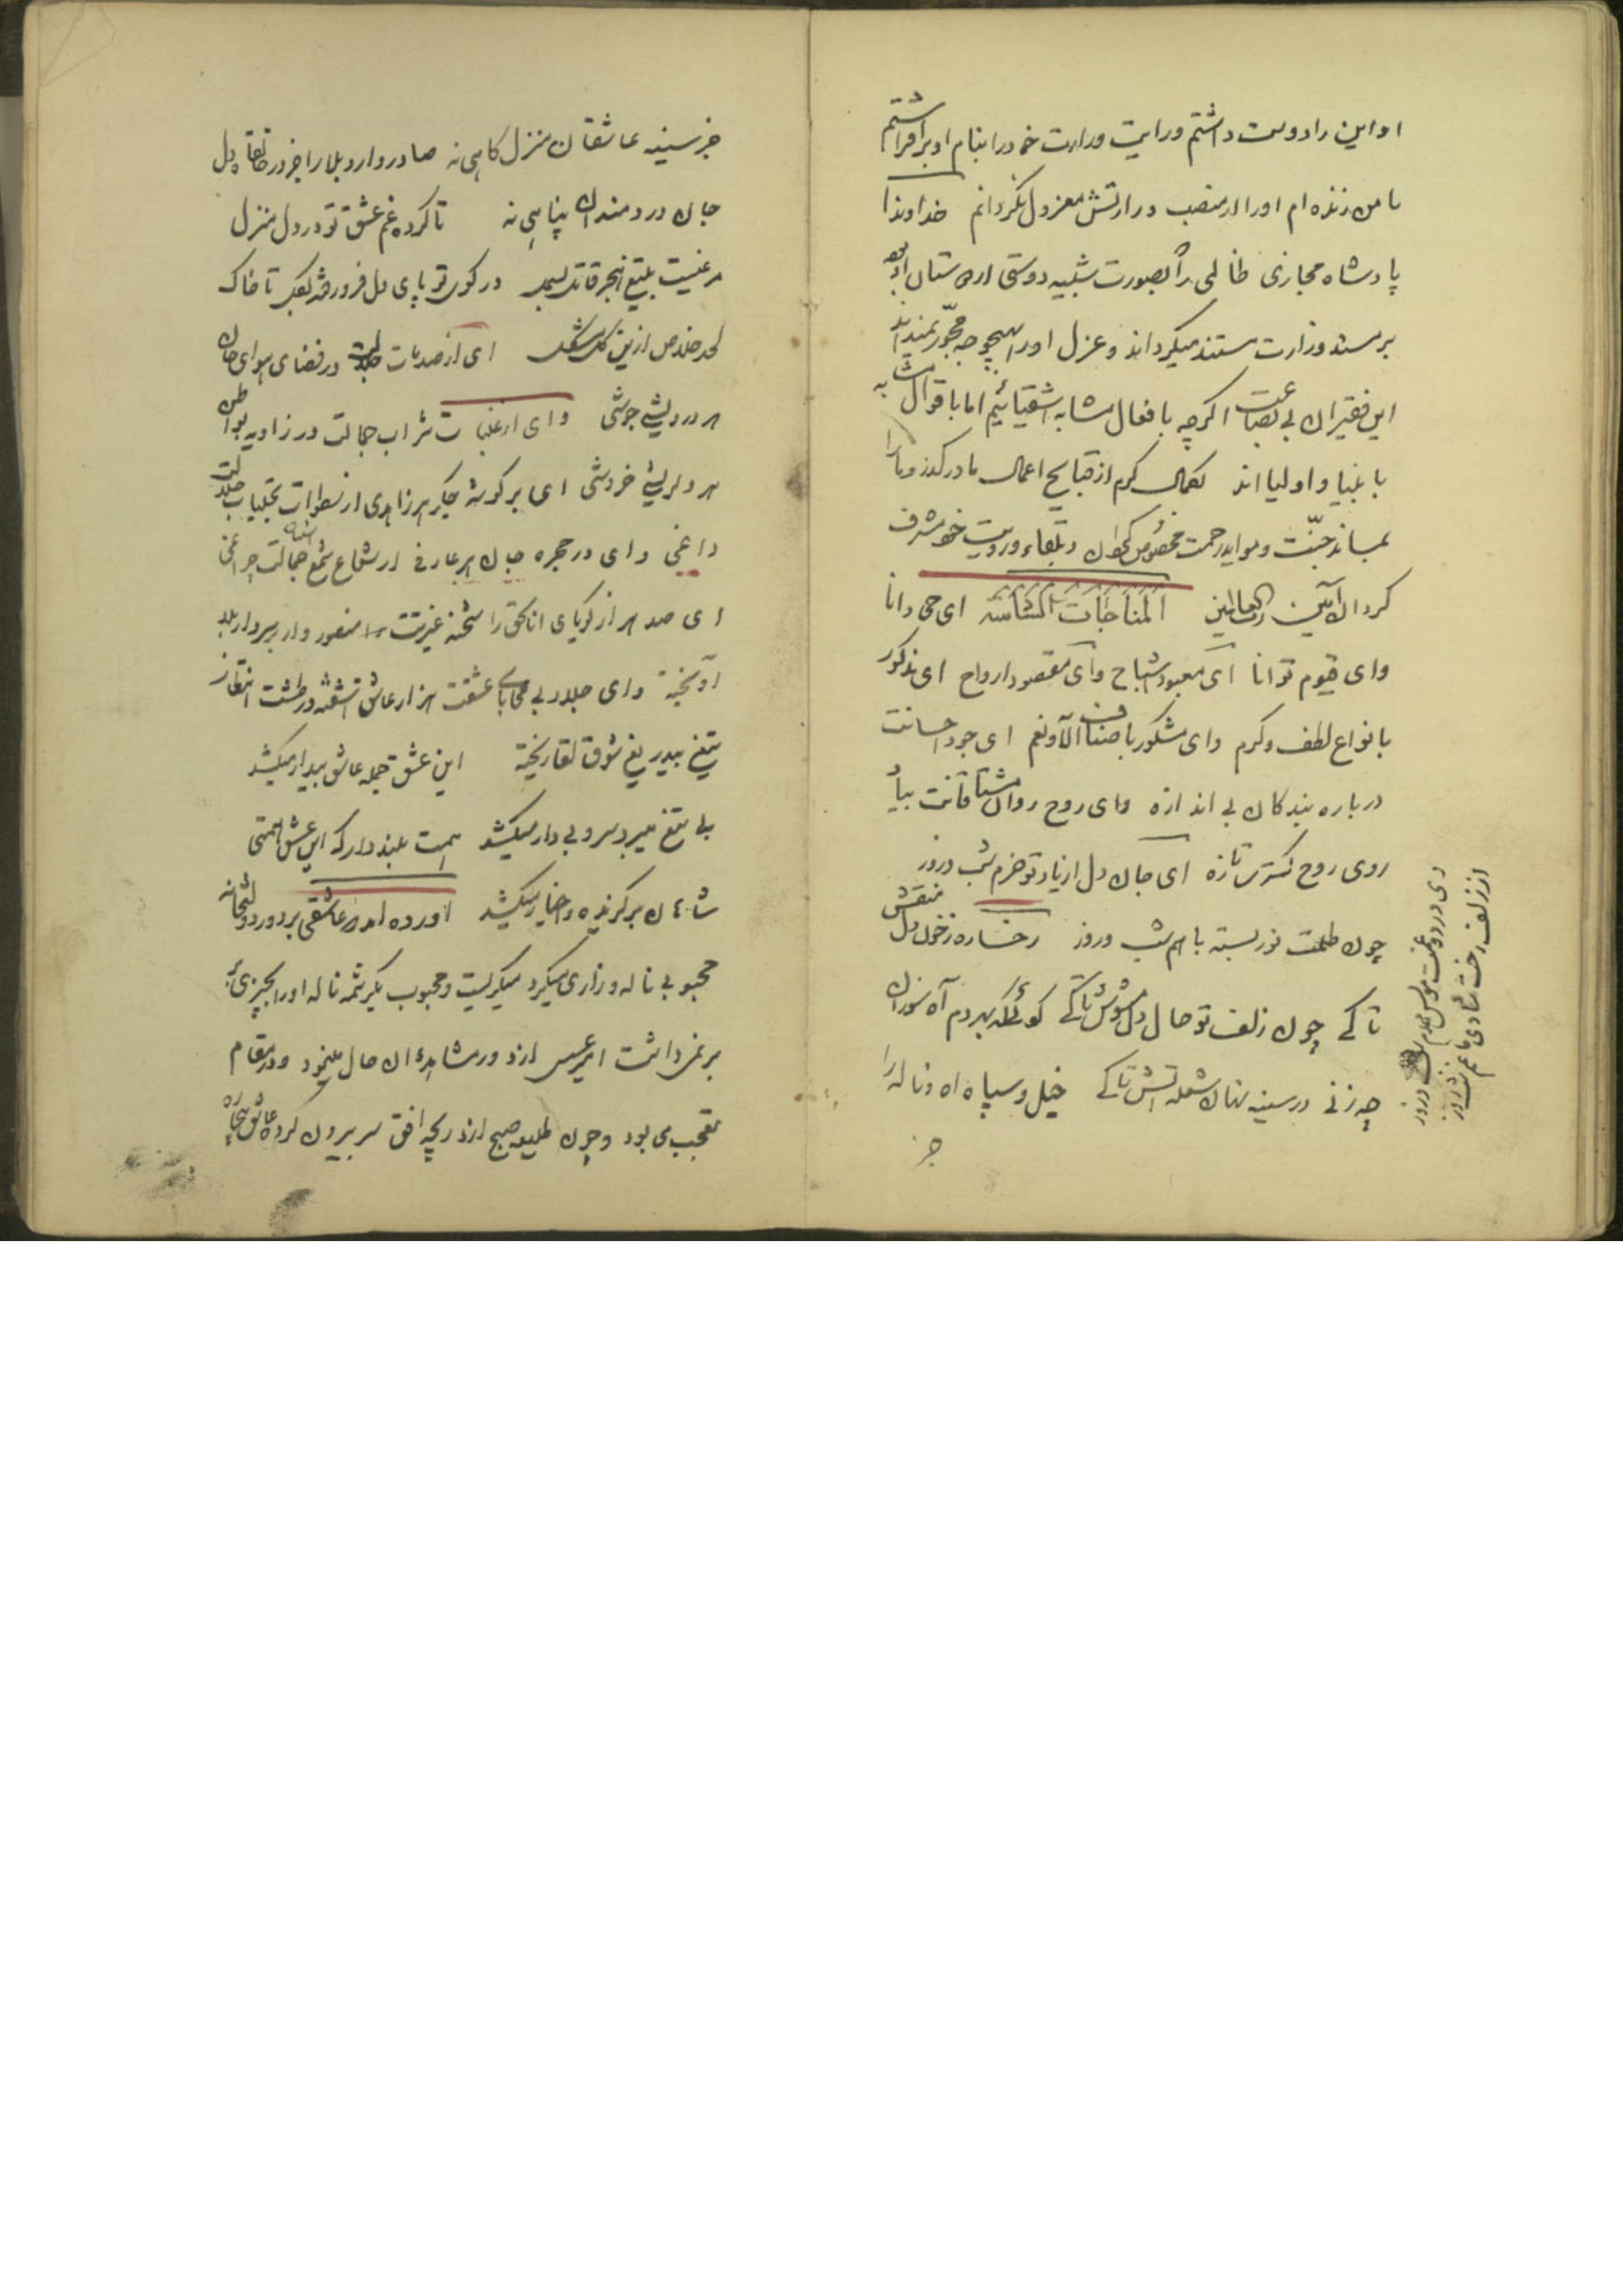 او این را دوست داشتم و رایت وزارت خود را بنام او برافراشتم
تا من زنده ام او را از منصب وزارتش معزول نگردانم خداوندا
پادشاه مجازی ظالمی را بصورت شبیه دوستی از دوستان او بود
بر مسند وزارت مستند میگرداند و عزل او را بهیچوجه مجوز نمیداند
این فقیران بی بضاعت اگرچه بافعال مشابه اشقیائیم اما باقوال مشابه
بانبیا و اولیا اند بکمال کرم از قبایح اعمال ما درگذر و ما را
بمساند جنت و موائد رحمت مخصوص گردان و بلقاء و رویت خود مشرف
گردان آمین رب العالمین المناجات الثالثه ای حی دانا
وای قیوم توانا ای معبود اشباح وای مقصود ارواح ای مذکور
بانواع لطف و کرم وای مشکور باصناف آلا و نعم ای جود احسانت
درباره بندگان بی اندازه وای روح روان مشتاقانت بیاد
روی روح گسترت تازه ای جان دل از یاد تو خرم شب و روز
چون طلعت نور بسته با هم شب و روز رخساره ز خون دل منقش
تا کے چون زلف تو حال دل مشوش تا کے گوئی که بهر دم آه سوزان
چه زنی در سینه نهان شعله آتش تا کے خیل و سپاه اه و ناله را
جز
وی درد و غمت مونس جانم شب و روز
از زلف و رخت شادی با غم شب و روز
جز سینه عاشقان منزل گاهی نه صادر و وارد بلا را جز در خانقاه دل
جان دردمندان پناهی نه تا کرده غم عشق تو در دل منزل
مرغیست بتیغ هجر قاتل بسمل در کوی تو پای دل فرو رفته بگل تا خاک
لحد خلاص ازین گل مشکل ای از صدمات جلالت در فضای هوای جان
هر درویشی جوشی وای از غلبات شراب جمالت در زاویه بواطن
هر دلریشی خروشی ای بر گوشه جگر هر زاهدی از سطوات تجلیات جلالت
داغی وای در حجره جان هر عارفی از شعاع شمع جمالت چراغی
ای صد هزار گویای انا الحق را شحنه غیرتت منصور وار بر سر دار بلا
آویخته وای جلاد بی محابای عشقت هزار عاشق آشفته در طشت انتظار
بتیغ بیدریغ شوق لقا ریخته این عشق جمله عاشق بیدار میکشد
بی تیغ میبرد سر و بی دار میکشد همت بلند دار که این عشق همتی
شاهان برگزیده و اخیار میکشد آورده اند عاشقی بر در دولتخانه
محبوبی ناله و زاری میکرد میگریست و محبوب یکرشمه ناله او را بچیزی
بر نمیداشت امیر عسس از دور مشاهده آن حال مینمود و در مقام
تعجب می بود و چون طلیعه صبح از دریچه افق سر بیرون کرد عاشق بیچاره